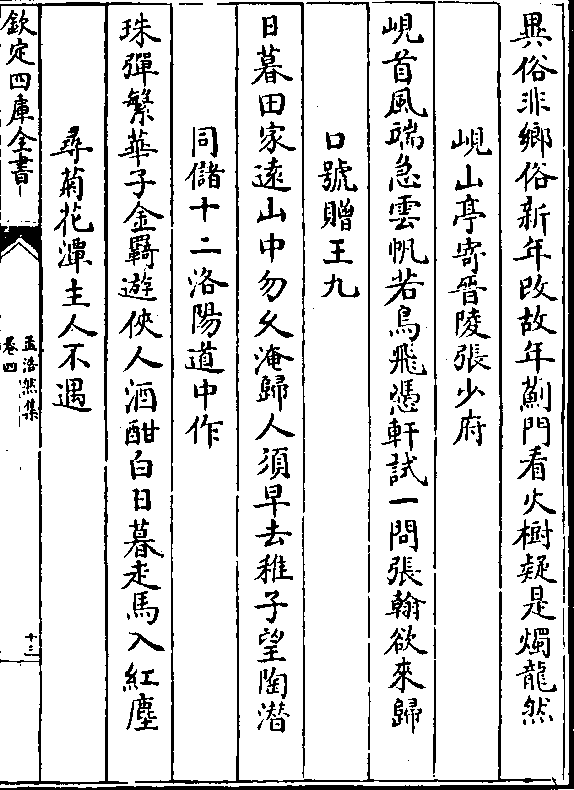 異俗非鄉俗新年改故年薊門看火樹疑是燭龍然
峴山亭寄晉陵張少府
峴首風湍急雲帆若鳥飛憑軒試一問張翰欲來歸
口號贈王九
日暮田家遠山中勿久淹歸人須早去稚子望陶潛
同儲十二洛陽道中作
珠彈繁華子金羇遊俠人酒酣白日暮走馬入紅塵
尋菊花潭主人不遇
欽定四庫全書
孟浩然集
卷四
十三